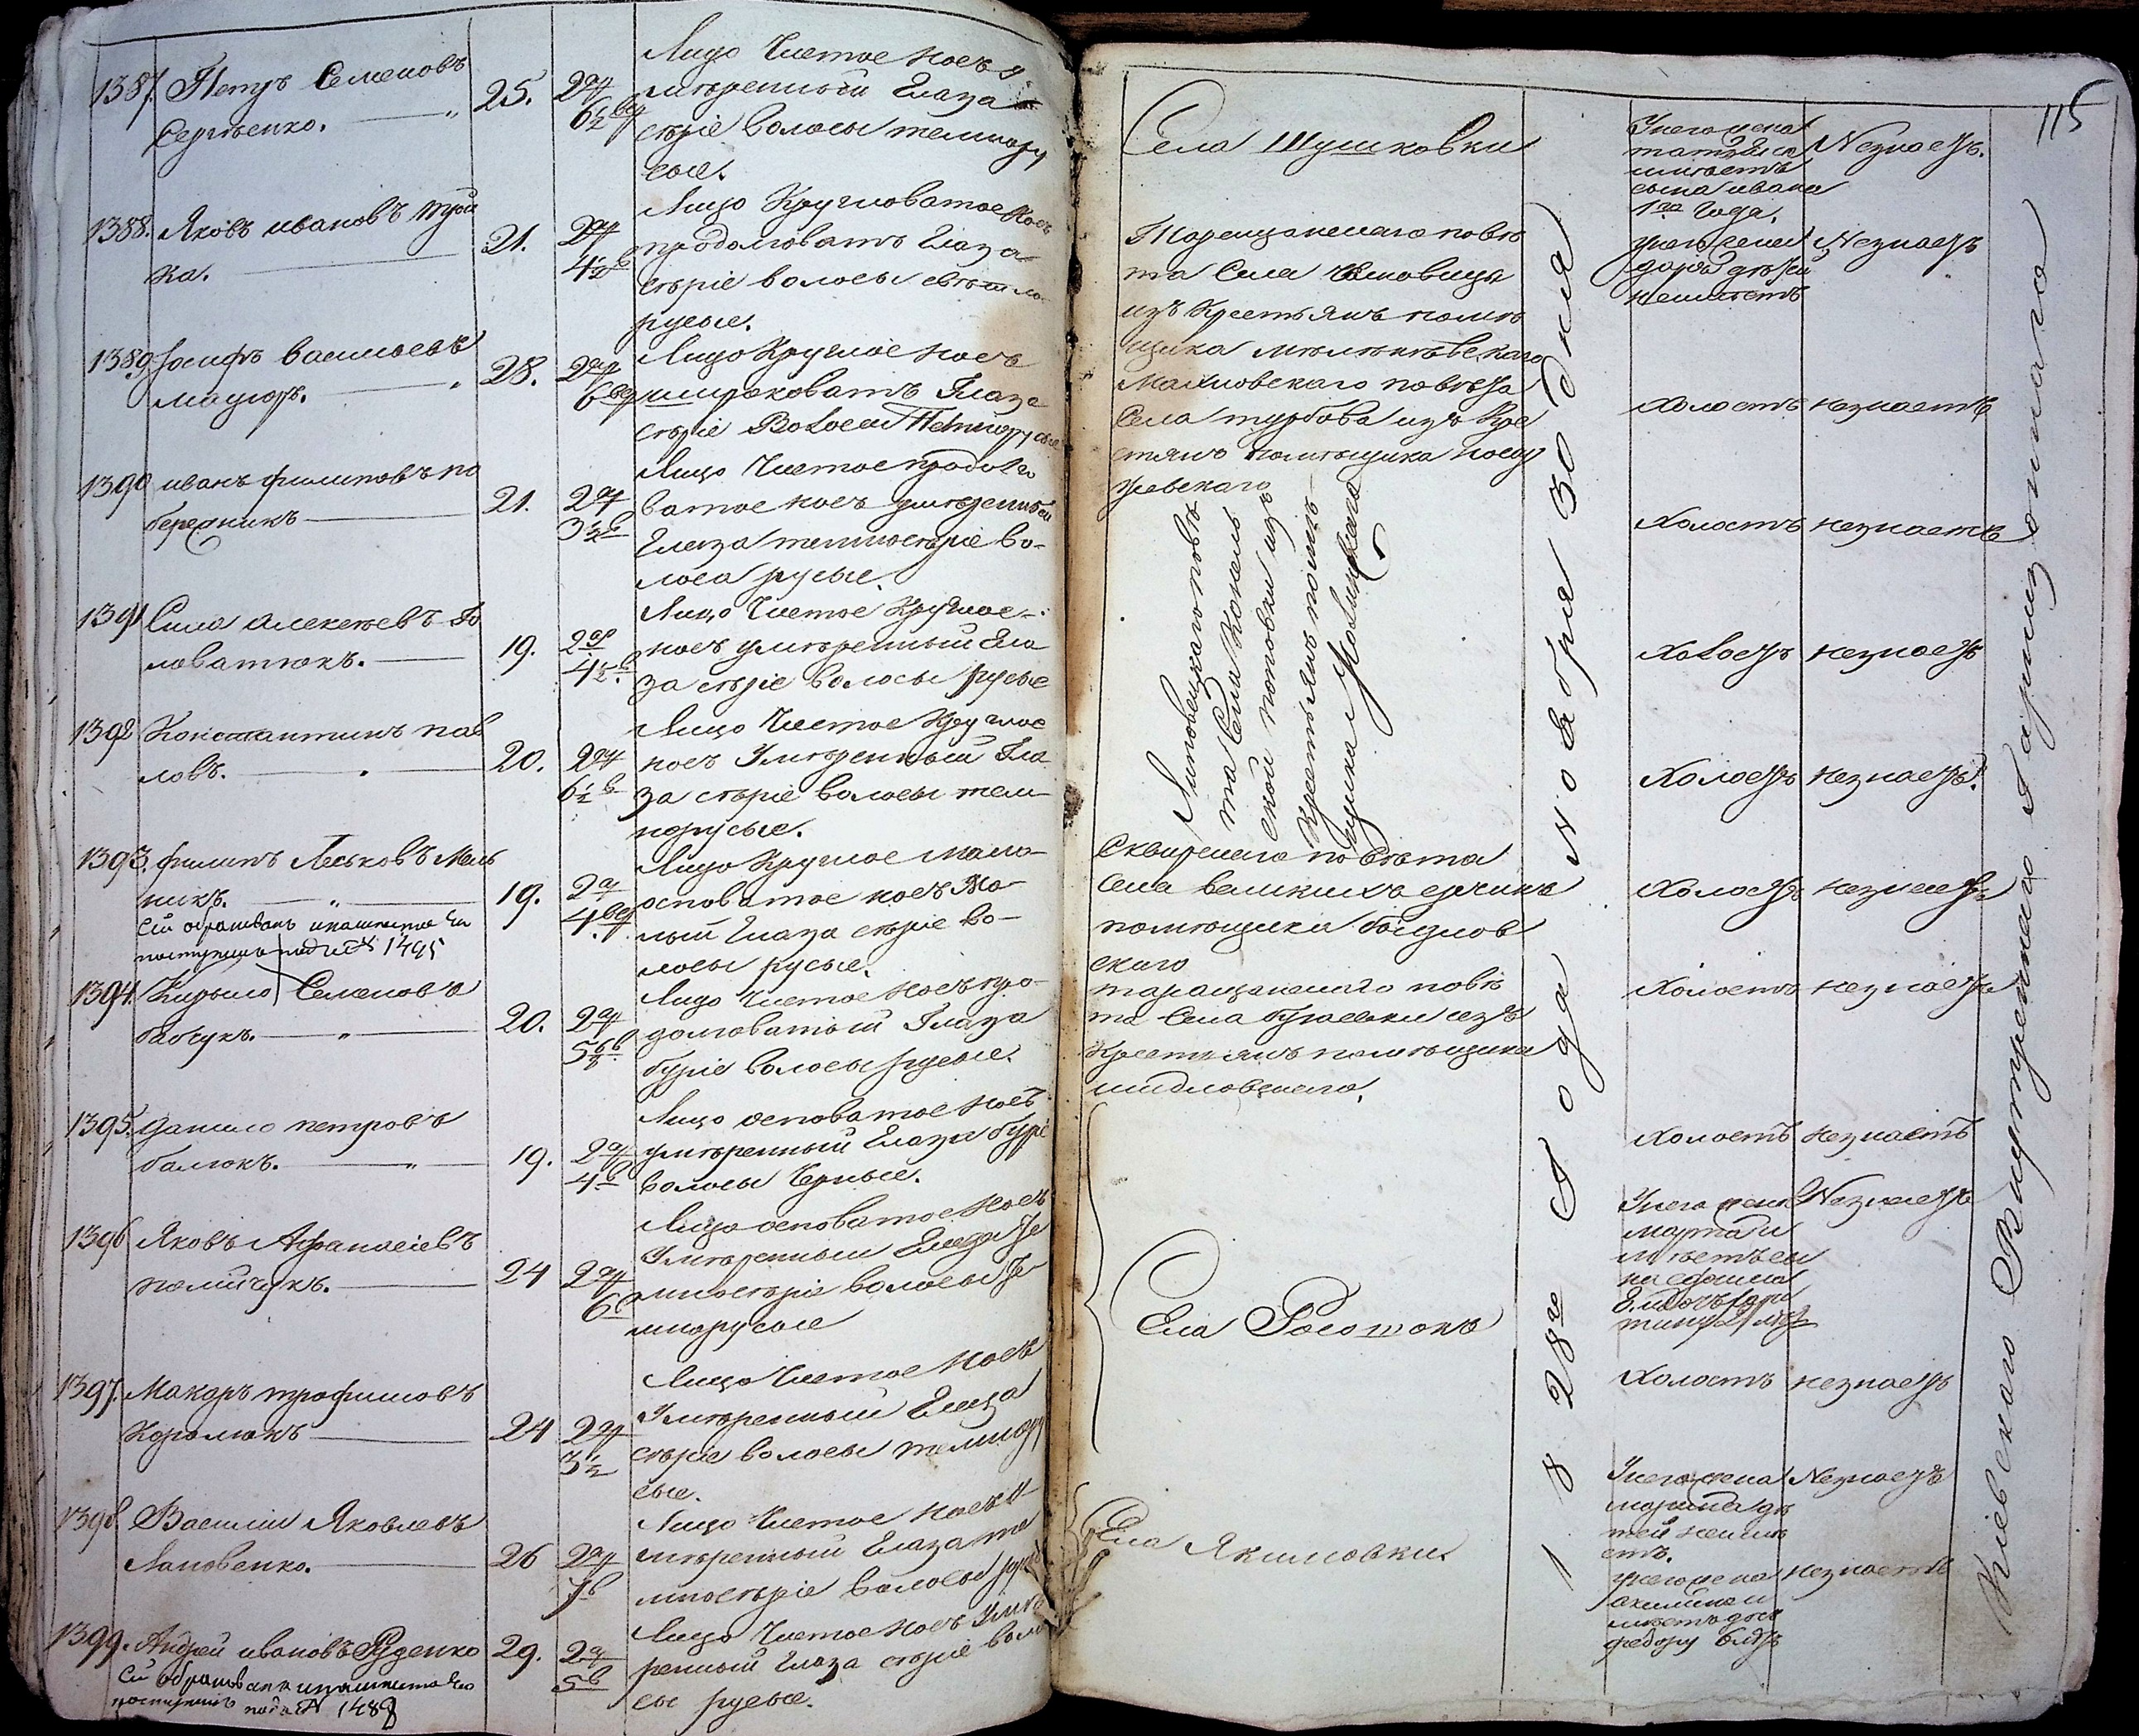 1387. Петръ Семеновъ
Сергѣенко.
25.
2 ар
6½ вер
Лицо Чистое носъ у
мѣренный Глаза
сѣріе волосы темнору
сые.
1388. Яковъ ивановъ
ка.
21.
2 ар
4½ в
Лицо Кругловатое Носъ
продолговатъ Глаза
сѣріе волосы свѣтло
русые.
1389. Іосифъ васильевъ
мацюръ.
28.
2 ар
6 вер
Лицо Круглое носъ
широковатъ Глаза
сѣріе Волосы Темнорусые
1390 иванъ филиповъ по
бережникъ
21.
2 ар
3½ в
Лицо Чистое продолго
ватое носъ умѣренный
Глаза темносѣріе во-
лоса русые.
1391 Сила алексѣевъ Го
ловатюкъ.
19.
2 ар
4½ в
Лицо Чистое Круглое
носъ умѣренный Гла
за сѣріе волосы русые
1392 Константинъ пав
ловъ.
20.
2 ар
6½ в
Лицо Чистое Круглое
носъ Умѣренный Гла
за сѣріе волосы тем-
норусые.
1393. филипъ Леськовъ Мель
никъ.
сей обращенъ
поступилъ подъ № 1495
19.
2 ар
4 вер
Лицо Круглое мало-
осповатое носъ Ма-
лый Глаза сѣріе во-
лосы русые.
1394. Кирыло Семеновъ
бабчукъ.
20.
2 ар
Лицо Чистое Носъ про-
долговатый Глаза
буріе волосы русые.
1395. данило петровъ
балюкъ.
19.
2 ар
4 в
Лицо осповатое Носъ
умѣренный Глаза буріе
волосы Черные.
1396 Яковъ Афанасіевъ
помичукъ.
24
2 ар
6 в
Лицо осповатое Носъ
Умѣренный Глаза те
мносѣріе волосы те
мнорусые
1397. Макаръ трофимовъ
Королюкъ
24
2 ар
3½
Лицо Чистое Носъ
Умѣренный Глаза
сѣріе волосы темнору
сые.
1398. Василій Яковлевъ
Лановенко.
26
2 ар
7 в
Лицо Чистое Носъ у-
мѣренный Глаза те
мносѣріе волосы русые
1399. Андрей ивановъ Руденко
Сей обращенъ
поступилъ подъ № 1488
29.
2 ар
5 в
Лицо Чистое Носъ Умѣ
ренный Глаза сѣріе воло
сы русые.
115
Села Шушковки
Таращанскаго повѣ
та Села
изъ Крестьянъ помѣ
щика
Махновскаго повѣта
Села турбова изъ Кре
стянъ помѣщика
Липовецкаго повѣ
та Села Конель
ской поповки изъ
Крестьянъ помѣ
щика
Сквирскаго повѣта
Села великихъ ерчикъ
помѣщика
скаго
таращанскаго повѣ
та Села изъ
Крестьянъ помѣщика
Села Росошокъ
Села Якимовки.
1828го Года Ноября 30 дня
Унего жена
имѣетъ
сына ивана
1го Года.
Незнаетъ.
унего жена
дарія дѣтей
неимѣетъ
Незнаетъ
Холостъ незнаетъ
Холостъ незнаетъ
Холостъ незнаетъ
Холостъ незнаетъ.
Холостъ незнаетъ
Холостъ незнаетъ
Холостъ незнаетъ
Унего жена
марта и
мѣетъ сы
на
Незнаетъ
Холостъ незнаетъ
Унего жена
марина дѣ
тей неимѣ
етъ.
Незнаетъ
унего жена
акилина и
мѣетъ дочь
федору
незнаетъ
Кіевскаго Внутренняго Гарнизоннаго